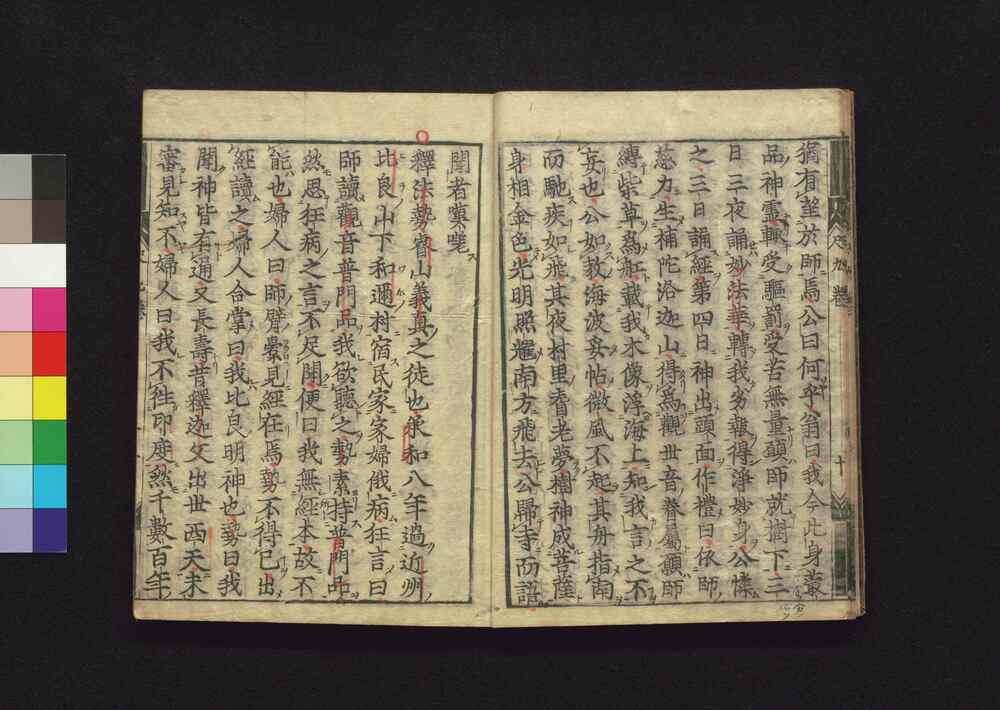 猶有望於師焉公曰何乎翁曰我今此身叢
品神靈輙受驅罰受苦無量願師就樹下二
日三夜誦妙法華轉我劣報得淨妙身公憐
之三日誦經第四日神出頭面作禮曰依師
慈力生補陀洛迦山得爲觀世音眷屬願師
縛柴草爲舡載我木像浮海上知我言之不
妄也公如教海波妥帖微風不起其舟指南
而馳疾如飛其夜村里耆老夢樹神成菩薩
身相金色光明照耀南方飛去公歸寺而語
聞者
釋法勢睿山義眞之徒也承和八年過近州
比良山下和邇村宿民家家婦俄病狂言曰
師讀觀音普門品我欲聽之勢素持普門品
然思狂病之言不足聞便曰我無經本故不
能也婦人曰師臂嚢見經在焉勢不得已出
經讀之婦人合掌曰我比良明神也勢曰我
聞神皆有通又長壽昔釋迦文出世西天未
審見知不婦人曰我不徃印度然千數百年